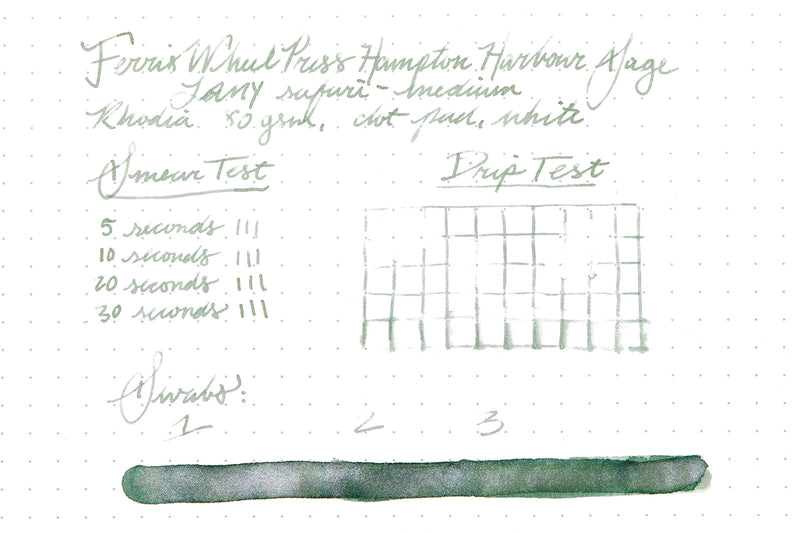 Ferris Wheel Press Hampton Harbour Sage
LAMY safari - medium
Rhodia 80 gsm, dot pad, white
Smear Test
Drip Test
5 seconds III
10 seconds III
20 seconds III
30 seconds III
Swabs:
1 2 3